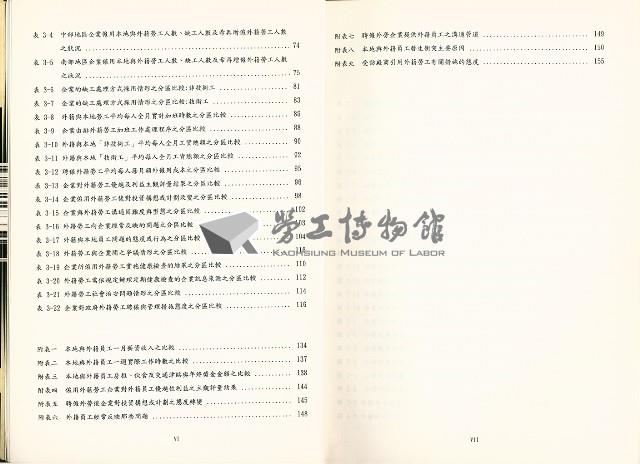 表 3-4 中部地區企業僱用本地與外籍勞工人數、缺工人數及希再增僱外籍勞工人數
之狀況 74
表 3-5 南部地區企業僱用本地與外籍勞工人數、缺工人數及希再增僱外籍勞工人數
之狀況 75
表 3-6 企業的缺工處理方式採用情形之分區比較:非技術工 81
表 3-7 企業的缺工處理方式採用情形之分區比較:技術工 83
表 3-8 外籍與本地勞工平均每人全月實計加班時數之分區比較 86
表 3-9 企業由排外籍勞工加班工作處理程序之分區比較 88
表 3-10 外籍與本地「非技術工」平均每人全月工資總額之分區比較 90
表 3-11 外籍與本地「技術工」平均每人全月工資總額之分區比較 92
表 3-12 聘僱外籍勞工平均每人每月額外僱用成本之分區比較 95
表 3-13 企業對外籍勞工優施及利益主觀評量結果之分區比較 96
表 3-14 企業僱用外籍勞工後對投資構想或計劃改變之分區比較 98
表 3-15 企業與外籍勞工溝通困難度與型態之分區比較 102
表 3-16 外籍勞工向企業經常反映的問題之分區比較 103
表 3-17 外籍與本地員工問題的態度或行為之分區比較 104
表 3-18 外籍勞工與企業間之爭議情形之分區比較 108
表 3-19 企業所僱用外籍勞工實施健康檢查的結果之分區比較 110
表 3-20 外籍勞工需依規定辦理定期健康檢查的企業訊息來源之分區比較 112
表 3-21 外籍勞工社會治安問題情形之分區比較 114
表 3-22 企業對政府外籍勞工聘僱與管理措施態度之分區比較 116
附表一 本地與外籍員工一月薪資收入之比較 134
附表二 本地與外籍員工一週實際工作時數之比較 137
附表三 本地與外籍員工房租、伙食及交通津貼與年終獎金金額之比較 138
附表四 僱用外籍勞工企業對外籍員工優施性利益之主觀評量結果 144
附表五 聘僱外勞後企業對投資構想或計劃之態度轉變 145
附表六 外籍員工經常反映那些問題 148
VI
附表七 聘僱外勞企業提供外籍員工之溝通管道 149
附表八 本地與外籍員工發生衝突主要原因 150
附表九 受訪廠商引用外籍勞工有關措施的態度 155
VII
勞工博物館
KAOHSIUNG MUSEUM OF LABOR